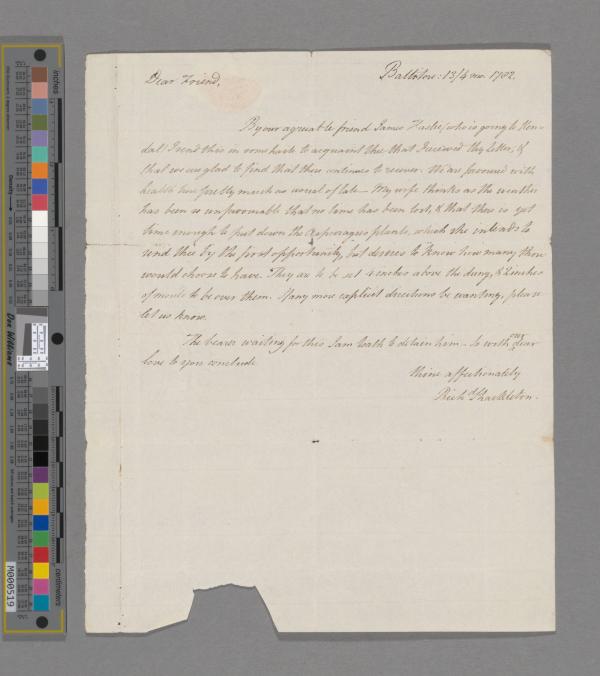 Dear Friend,
Ballitore: 13/4 mo. 1782.
By our agreeable friend James Haslee, who is going to Ken-
dal I send this in some haste to acquaint thee that I received thy letter, &
that we are glad to find that thou continues to recover. We are favoured with
health here pretty much as usual of late — My wife thinks as the weather
has been so unfavourable that no time has been lost, & that there is yet
time enough to put down the Asparagus plants, which she intends to
send thee by the first opportunity, but desires to know how many thou
would choose to have. They are to be set 4 inches above the dung, & 2 inches
of mould to be over them. If any more explicit directions be wanting, please
let us know.
The bearer waiting for this I am loath to detain him — So with our dear
love to you conclude
thine affectionately
Richd Shackleton.
inches
centimeters
Don Williams
Density
M000519